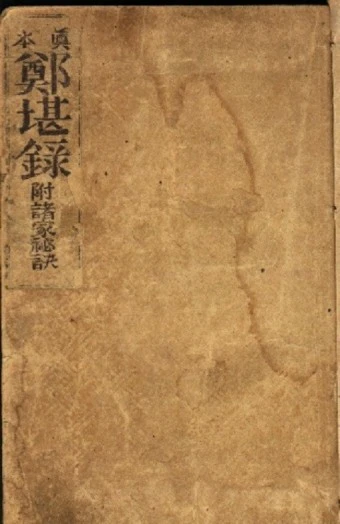 眞本
鄭堪錄
附諸家祕訣